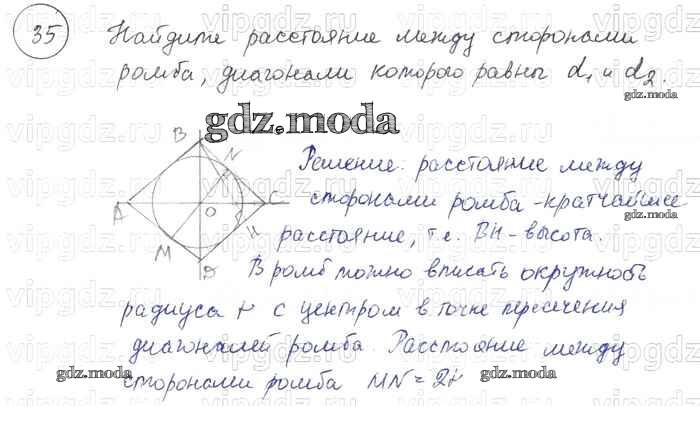 35 Найдите расстояние между сторонами
ромба, диагонали которого равны d₁ и d₂.
gdz.moda
B
N
A O C
M H
D
Решение: расстояние между
сторонами ромба - кратчайшее
gdz.moda
расстояние, т.е. BH - высота.
В ромб можно вписать окружность
радиуса r с центром в точке пересечения
диагоналей ромба. Расстояние между
gdz.moda gdz.moda
сторонами ромба MN = 2r
vipgdz.ru